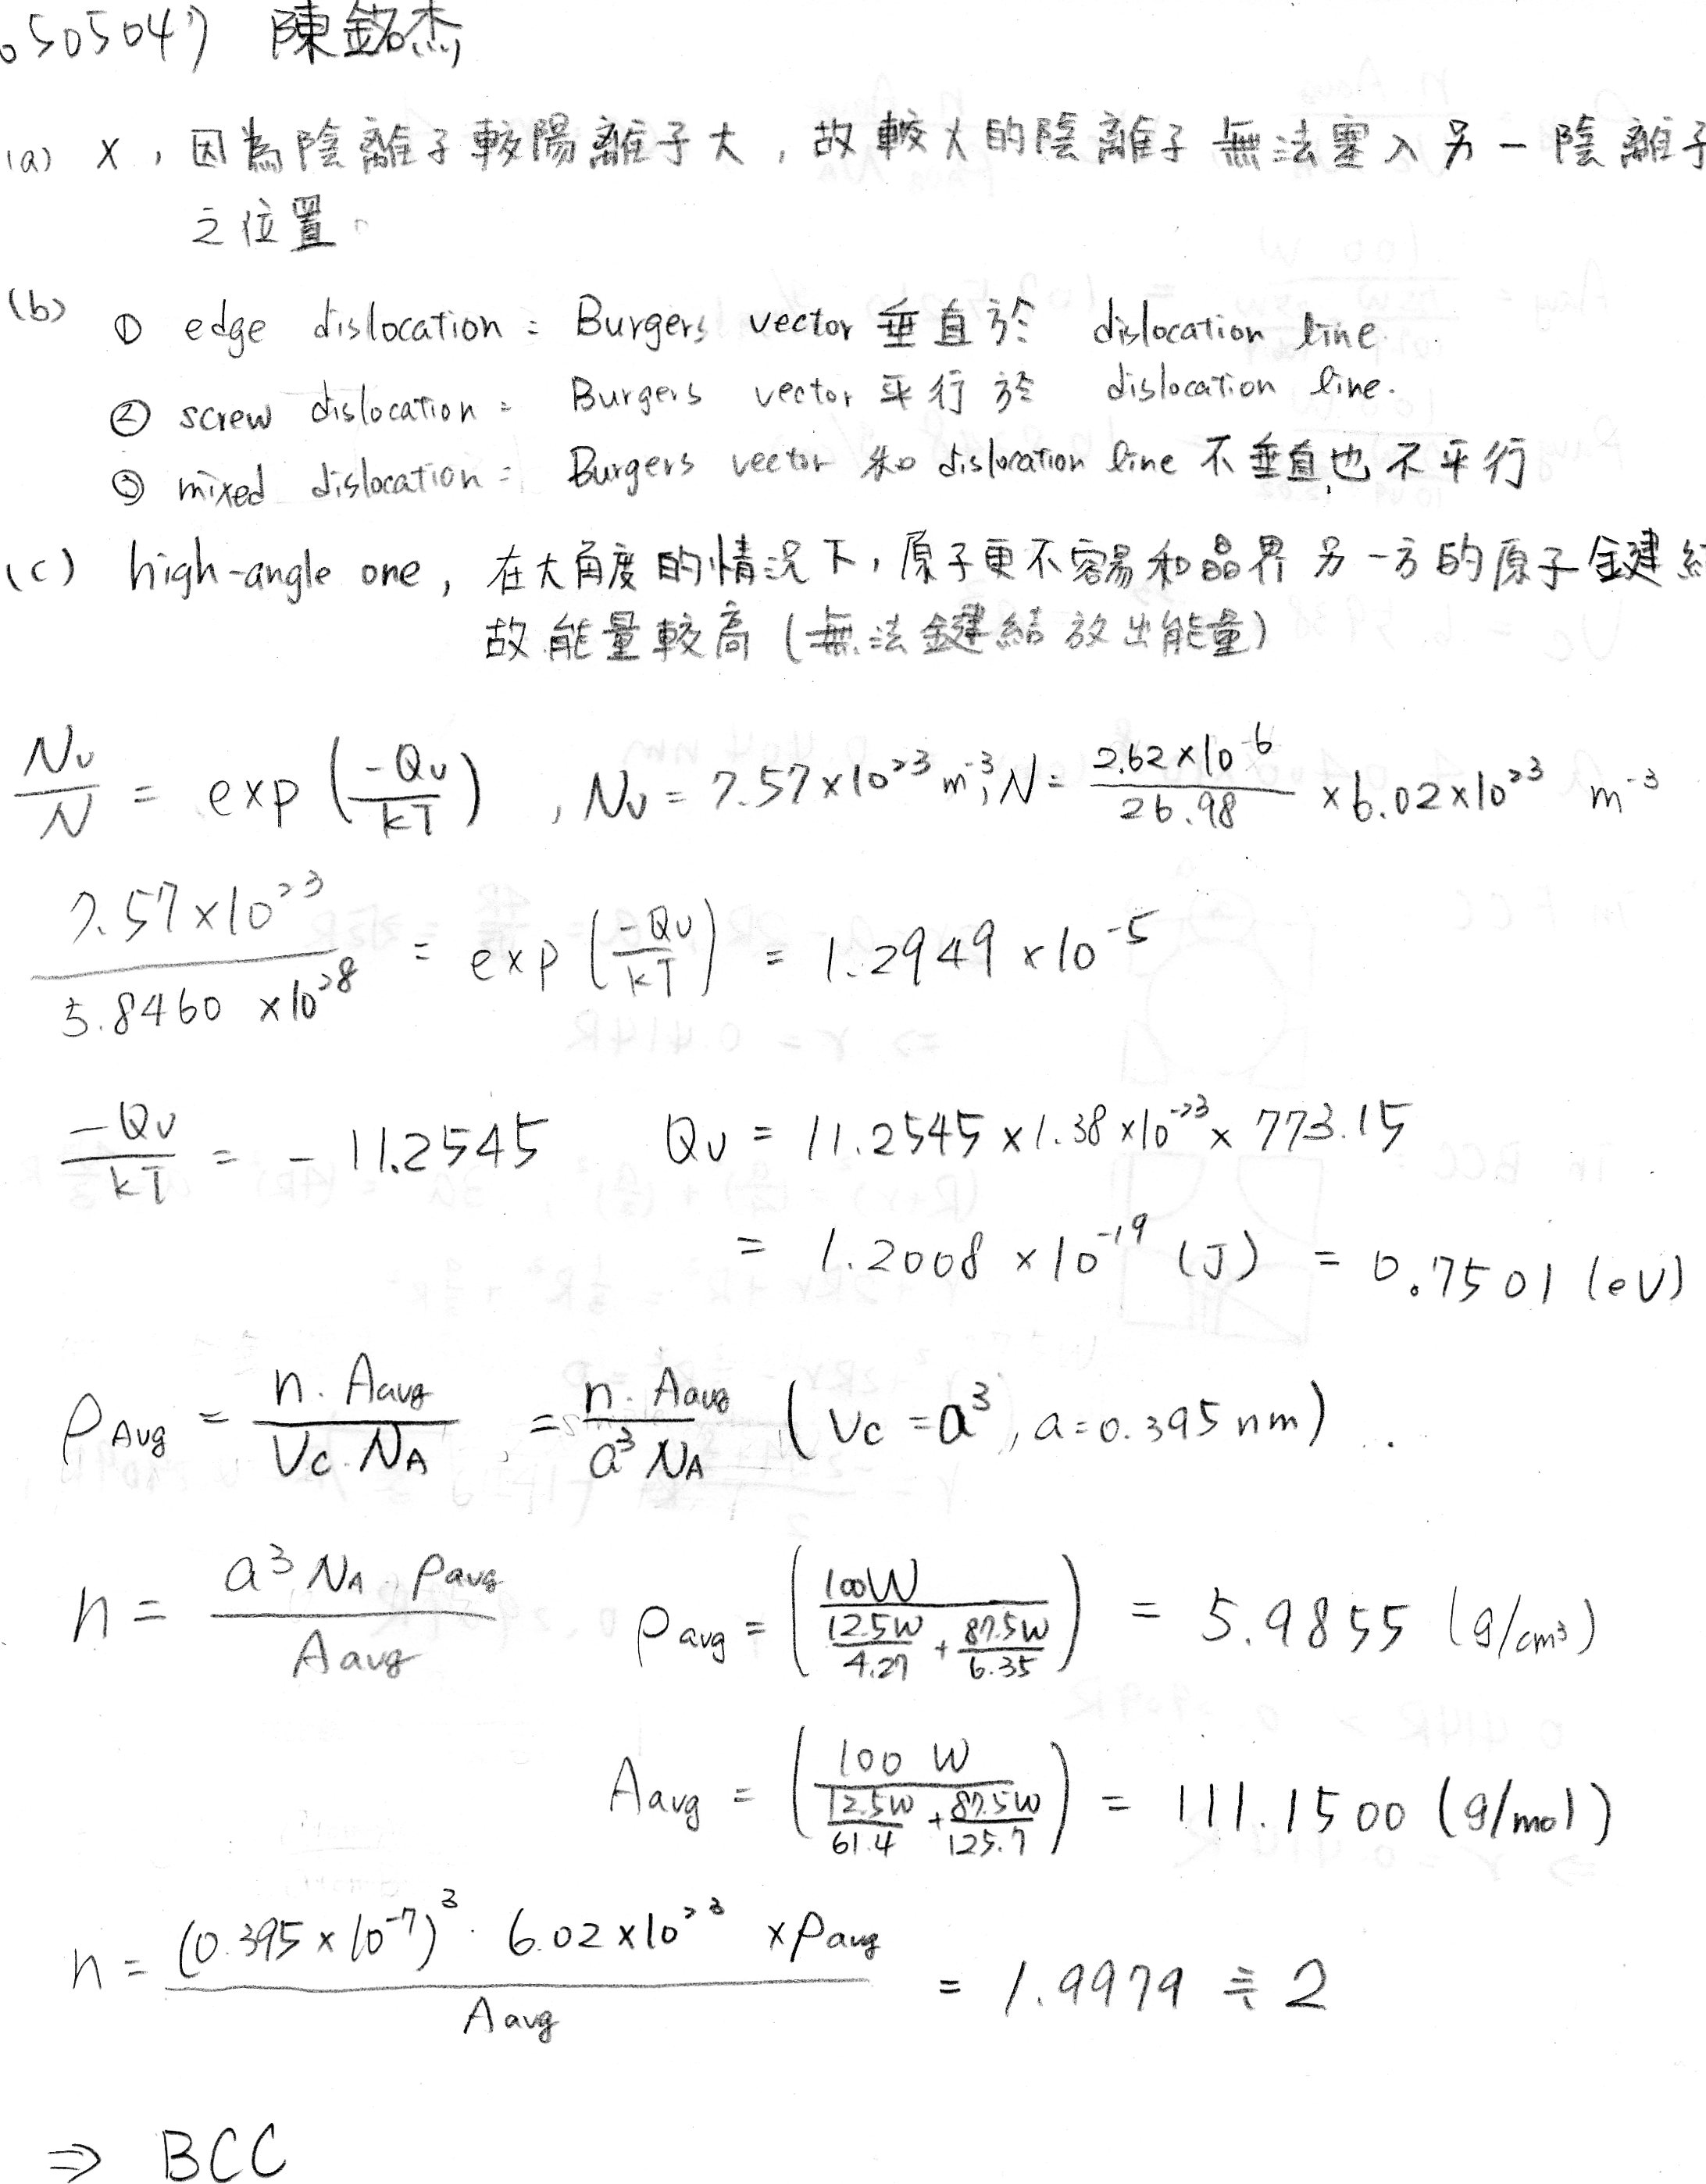 0505047 陳銘杰
(a) x , 因為陰離子較陽離子大 , 故較大的陰離子無法塞入另一陰離子
之位置。
(b) ① edge dislocation : Burgers vector 垂直於 dislocation line.
② screw dislocation : Burgers vector 平行於 dislocation line.
③ mixed dislocation : Burgers vector 和 dislocation line 不垂直也不平行
(c) high-angle one , 在大角度的情況下 , 原子更不容易和晶界另一方的原子鍵結
故能量較高 (無法鍵結放出能量)
Nv/N = exp (-Qv/kT) , Nv = 7.57×10²³ m⁻³ ; N = 2.62×10⁻⁶/26.98 ×6.02×10²³ m⁻³
7.57×10²³/5.8460 ×10²⁸ = exp (-Qv/kT) = 1.2949 ×10⁻⁵
-Qv/kT = - 11.2545 Qv = 11.2545×1.38×10⁻²³× 773.15
= 1.2008 ×10⁻¹⁹ (J) = 0.7501 (eV)
ρAvg = n. Aavg/Vc. NA = n. Aavg/a³ NA ( Vc = a³ , a = 0.395 nm) .
n = a³ NA . ρavg/Aavg ρavg = (100W/(12.5W/4.27 + 87.5W/6.35)) = 5.9855 (g/cm³)
Aavg = (100 W/(12.5W/61.4 + 87.5W/125.7)) = 111.1500 (g/mol)
n = (0.395×10⁻⁷)³ · 6.02×10²³ ×ρavg/Aavg = 1.9979 ≒ 2
⇒ BCC